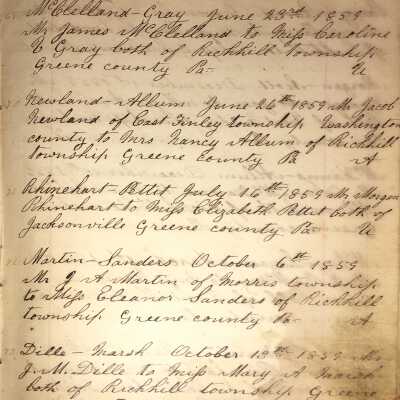 McClelland - Gray June 23rd 1859
Mr James McClelland to Miss Caroline
E Gray both of Richhill township
Greene county Pa - U
Newland - Allum June 26th 1859 Mr Jacob
Newland of East Finley township Washington
county to Mrs Nancy Allum of Richhill
township Greene county Pa A
Rhinehart - Pettit July 16th 1859 Mr Morgan
Rhinehart to Miss Elizabeth Pettit both of
Jacksonville Greene county Pa - U
Martin - Sanders October 6th 1859
Mr J A Martin of Morris township
to Miss Eleanor Sanders of Richhill
township Greene county Pa - A
Dille - Marsh October 1859 Mr
J. M. Dille to Miss Mary A Marsh
both of Richhill township Greene